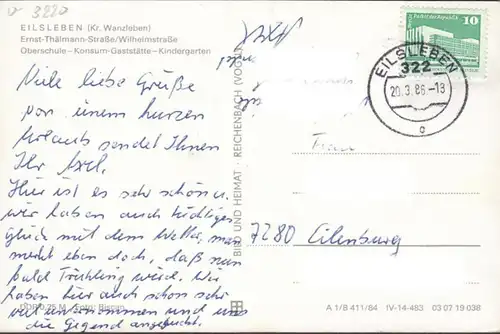 v 3220
EILSLEBEN (Kr. Wanzleben)
Ernst-Thälmann-Straße/Wilhelmstraße
Oberschule – Konsum-Gaststätte – Kindergarten
Viele liebe Grüße
von einem kurzen
Urlaub sendet Ihnen
Ihr Axel.
Hier ist es sehr schön u.
wir haben auch tüchtiges
Glück mit dem Wetter, man
merkt eben doch, daß nun
bald Frühling wird. Wir
haben hier auch schon sehr
viel unternommen und uns
die Gegend angeguckt.
BILD UND HEIMAT · REICHENBACH (VOGTL)
Palast der Republik
10
DDR
EILSLEBEN
322
20.3.86-13
c
Frau
7280 Eilenburg
A 1/B 411/84 IV-14-483 03 07 19 038